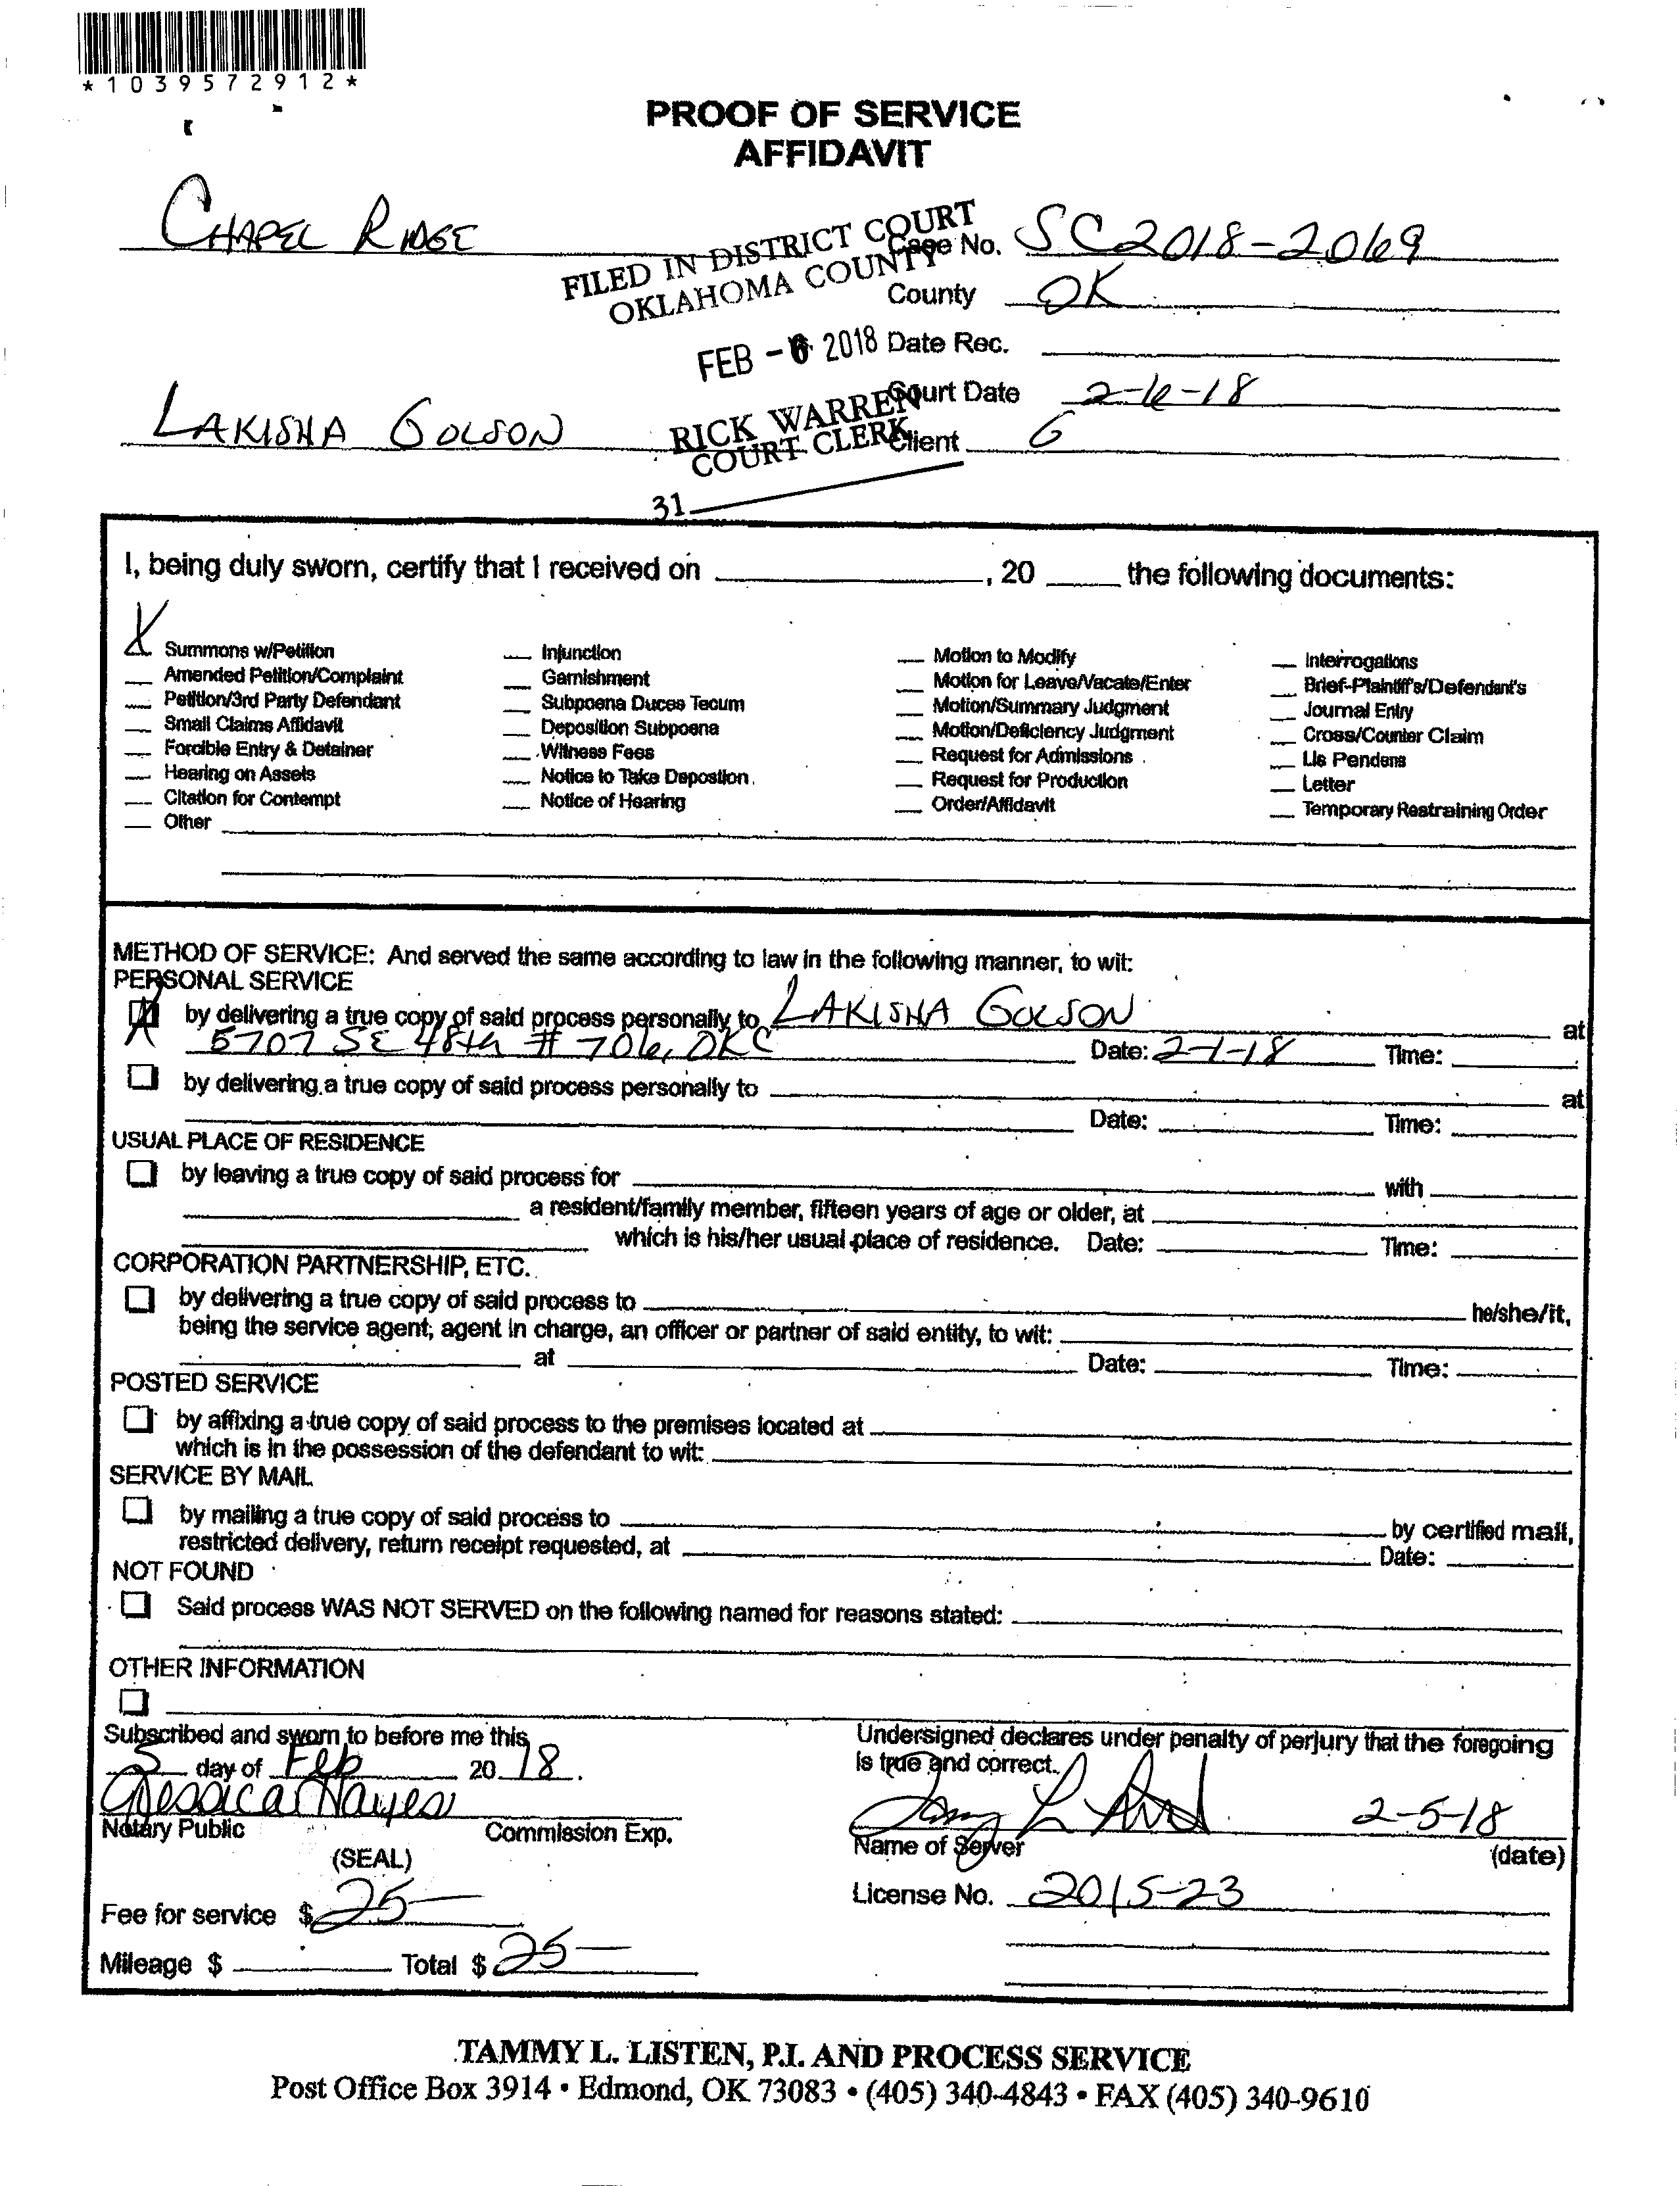 *1039572912*
PROOF OF SERVICE
AFFIDAVIT
CHAPEL RIDGE
FILED IN DISTRICT COURT
OKLAHOMA COUNTY
Case No. SC2018-2069
County OK
FEB -6 2018
Date Rec.
Court Date 2-6-18
LAKISHA GOLSON
RICK WARREN
COURT CLERK
Client G
31
I, being duly sworn, certify that I received on ____, 20 ____ the following documents:
X Summons w/Petition
Amended Petition/Complaint
Petition/3rd Party Defendant
Small Claims Affidavit
Forcible Entry & Detainer
Hearing on Assets
Citation for Contempt
Other
Injunction
Garnishment
Subpoena Duces Tecum
Deposition Subpoena
Witness Fees
Notice to Take Depostion.
Notice of Hearing
Motion to Modify
Motion for Leave/Vacate/Enter
Motion/Summary Judgment
Motion/Deficiency Judgment
Request for Admissions
Request for Production
Order/Affidavit
Interrogations
Brief-Plaintiff's/Defendant's
Journal Entry
Cross/Counter Claim
Lis Pendens
Letter
Temporary Restraining Order
METHOD OF SERVICE: And served the same according to law in the following manner, to wit:
PERSONAL SERVICE
X by delivering a true copy of said process personally to LAKISHA GOLSON at
5707 SE 48th # 706, OKC Date: 2-1-18 Time:
by delivering a true copy of said process personally to at
Date: Time:
USUAL PLACE OF RESIDENCE
by leaving a true copy of said process for with
a resident/family member, fifteen years of age or older, at
which is his/her usual place of residence. Date: Time:
CORPORATION PARTNERSHIP, ETC.
by delivering a true copy of said process to he/she/it,
being the service agent, agent in charge, an officer or partner of said entity, to wit:
at Date: Time:
POSTED SERVICE
by affixing a true copy of said process to the premises located at
which is in the possession of the defendant to wit:
SERVICE BY MAIL
by mailing a true copy of said process to by certified mail,
restricted delivery, return receipt requested, at Date:
NOT FOUND
Said process WAS NOT SERVED on the following named for reasons stated:
OTHER INFORMATION
Subscribed and sworn to before me this
5 day of Feb 20 18.
Jessica Hayes
Notary Public Commission Exp.
(SEAL)
Fee for service $ 25-
Mileage $ Total $ 25-
Undersigned declares under penalty of perjury that the foregoing
is true and correct.
2-5-18
Name of Server (date)
License No. 2015-23
TAMMY L. LISTEN, P.I. AND PROCESS SERVICE
Post Office Box 3914 • Edmond, OK 73083 • (405) 340-4843 • FAX (405) 340-9610